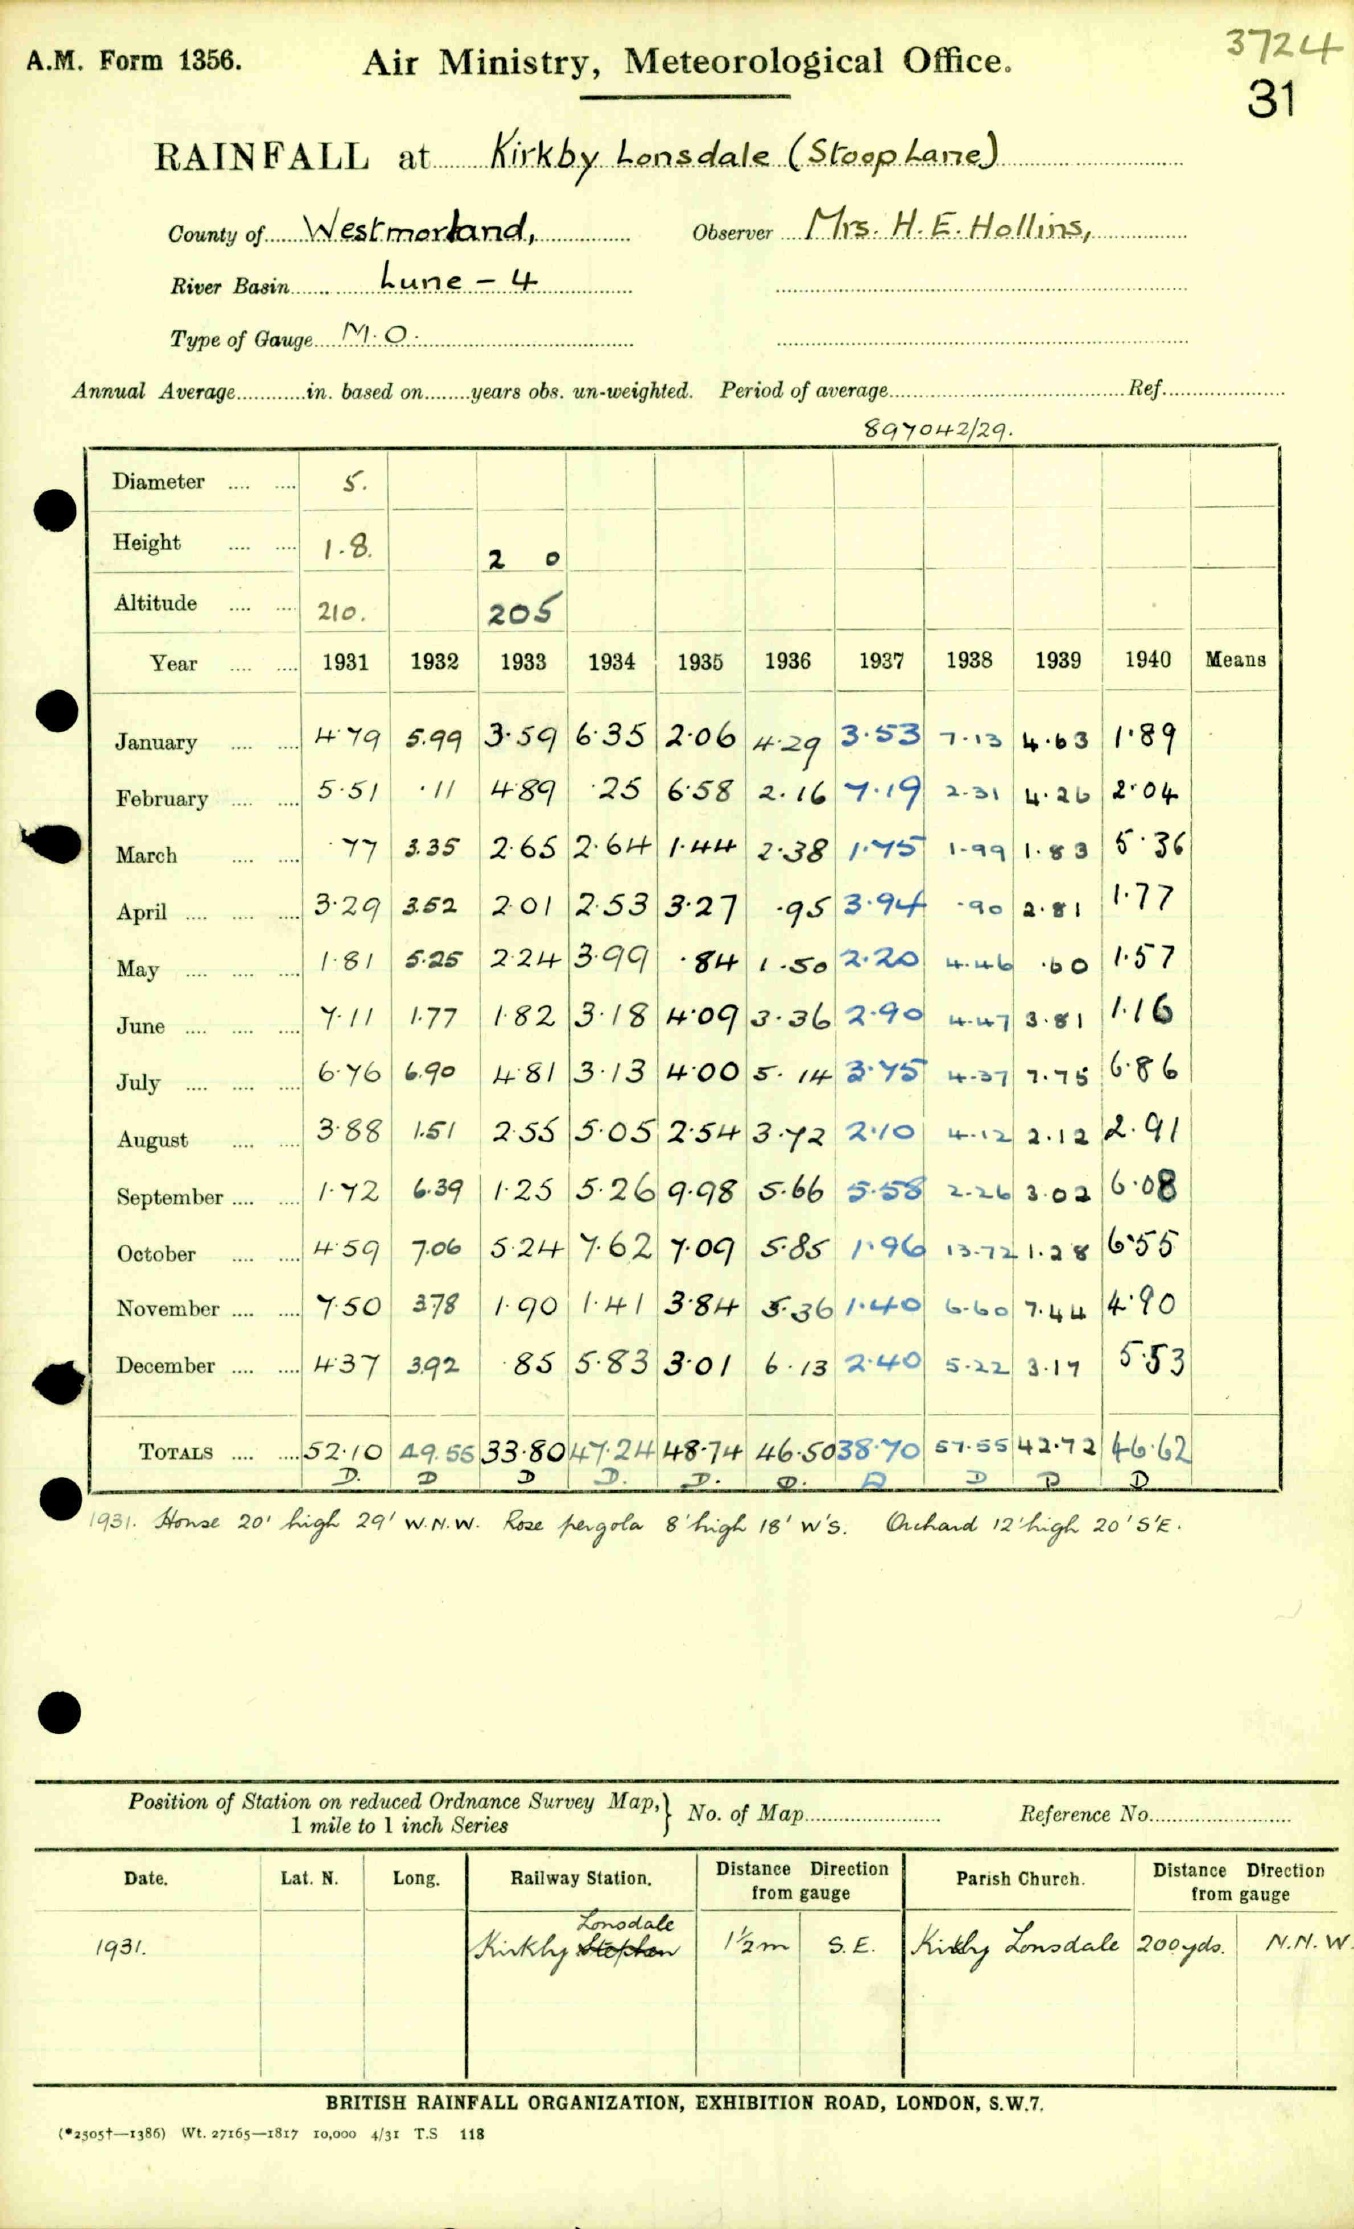 3724
A.M. Form 1356. Air Ministry, Meteorological Office.
31
RAINFALL at Kirkby Lonsdale (Stoop Lane)
County of Westmorland, Observer Mrs. H. E. Hollins,
River Basin Lune – 4
Type of Gauge M.O.
Annual Average in. based on years obs. un-weighted. Period of average Ref.
897042/29.
Diameter 5.
Height 1.8. 2 0
Altitude 210. 205
Year 1931 1932 1933 1934 1935 1936 1937 1938 1939 1940 Means
January 4.79 5.99 3.59 6.35 2.06 4.29 3.53 7.13 4.63 1.89
February 5.51 .11 4.89 .25 6.58 2.16 7.19 2.31 4.26 2.04
March .77 3.35 2.65 2.64 1.44 2.38 1.75 1.99 1.83 5.36
April 3.29 3.52 2.01 2.53 3.27 .95 3.94 .90 2.81 1.77
May 1.81 5.25 2.24 3.99 .84 1.50 2.20 4.46 .60 1.57
June 7.11 1.77 1.82 3.18 4.09 3.36 2.90 4.47 3.81 1.16
July 6.76 6.90 4.81 3.13 4.00 5.14 3.75 4.37 7.75 6.86
August 3.88 1.51 2.55 5.05 2.54 3.72 2.10 4.12 2.12 2.91
September 1.72 6.39 1.25 5.26 9.98 5.66 5.58 2.26 3.02 6.08
October 4.59 7.06 5.24 7.62 7.09 5.85 1.96 13.72 1.28 6.55
November 7.50 3.78 1.90 1.41 3.84 5.36 1.40 6.60 7.44 4.90
December 4.37 3.92 .85 5.83 3.01 6.13 2.40 5.22 3.17 5.53
TOTALS 52.10 49.55 33.80 47.24 48.74 46.50 38.70 57.55 42.72 46.62
D. D D D. D. D. D D D D
1931. House 20' high 29' W.N.W. Rose pergola 8' high 18' W'S. Orchard 12' high 20' S'E.
Position of Station on reduced Ordnance Survey Map, } No. of Map Reference No.
1 mile to 1 inch Series
Date. Lat. N. Long. Railway Station. Distance Direction from gauge Parish Church. Distance Direction from gauge
Lonsdale
1931. Kirkby Stephen 1½m S.E. Kirkby Lonsdale 200yds. N.N.W.
BRITISH RAINFALL ORGANIZATION, EXHIBITION ROAD, LONDON, S.W.7.
(*2505†—1386) Wt. 27165—1817 10,000 4/31 T.S 118